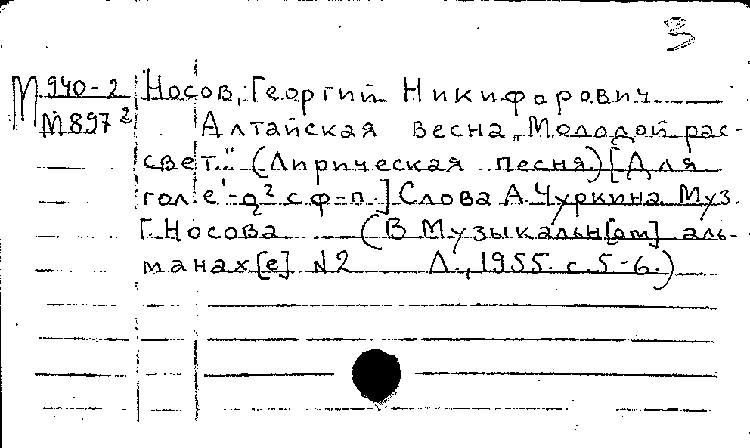 3
М 940-2 Носов, Георгий Никифорович
М897² Алтайская весна „Молодой рас-
свет..." (Лирическая песня) [Для
гол. e'-g² с ф-п.] Слова А. Чуркина Муз.
Г. Носова (В Музыкальн[ом] аль-
манах[е] №2 Л., 1955. с. 5-6.)